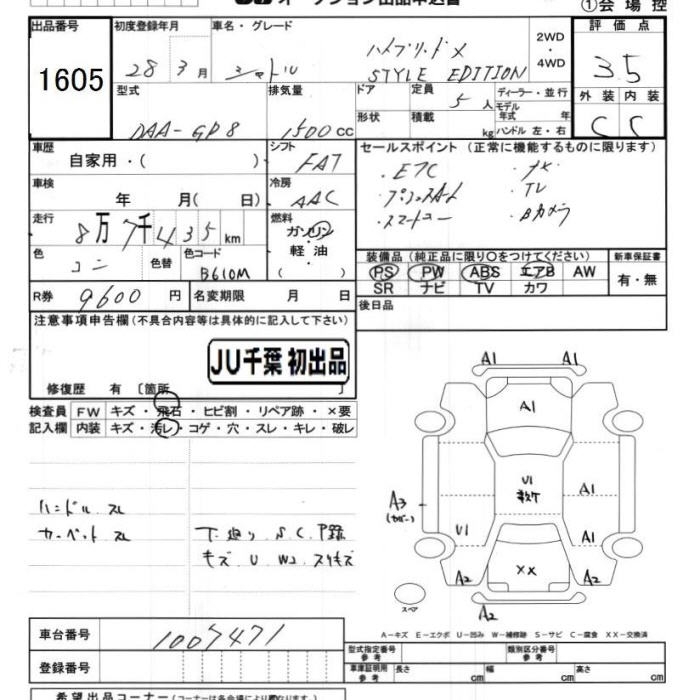 オークション出品申込書
①会場控
出品番号 初度登録年月 車名・グレード 2WD・4WD 評価点
1605 28年3月 シャトル ハイブリッドX STYLE EDITION 3.5
型式 排気量 ドア 定員 5人 ディーラー・並行 外装 内装
DAA-GP8 1500cc 形状 積載 kg モデル年式 年 ハンドル 左・右 C C
車歴 自家用・( ) シフト FAT セールスポイント(正常に機能するものに限ります)
車検 年 月( 日) 冷房 AAC ・ETC ・ナビ
・プッシュスタート ・TV
・スマートキー ・Bカメラ
走行 8万7千435km 燃料 ガソリン・軽油( )
色 コン 色替 色コード B610M
装備品(純正品に限り○をつけてください) 新車保証書
PS PW ABS エアB AW 有・無
SR ナビ TV カワ
R券 9600円 名変期限 月 日
後日品
注意事項申告欄(不具合内容等は具体的に記入して下さい)
JU千葉 初出品
修復歴 有 〔箇所 〕
検査員 FW キズ・飛石・ヒビ割・リペア跡・×要
記入欄 内装 キズ・汚レ・コゲ・穴・スレ・キレ・破レ
ハンドル スレ
カーペット スレ
下廻り S.C.P録
キズ U W2 スリキズ
A1 A1
A1
U1
A1
A3
(カバー)
U1 A1
A2 XX A2
スペア
A2
A-キズ E-エクボ U-凹み W-補修跡 S-サビ C-腐食 XX-交換済
車台番号 1007471
型式指定番号 参考 類別区分番号 参考
登録番号 車庫証明用 参考 長さ cm 幅 cm 高さ cm
希望出品コーナー